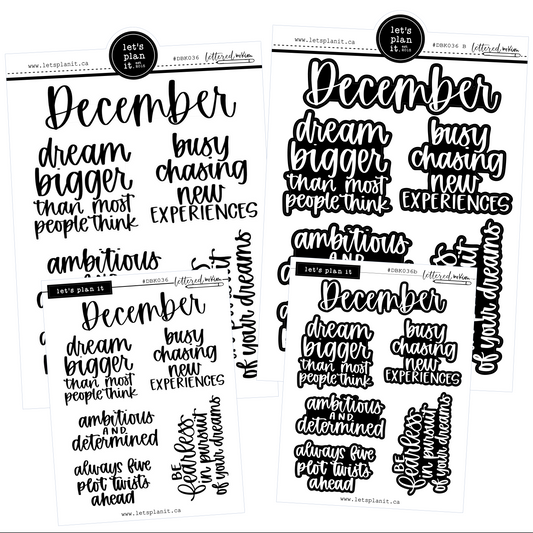 let's
plan
it.
EST. 2015
www.letsplanit.ca
#DBK036
lettered.mkim
December
dream
bigger
than most
people think
busy
chasing
new
EXPERIENCES
ambitious
AND
let's
plan
it.
EST. 2015
www.letsplanit.ca
#DBK036 B
lettered.mkim
December
dream
bigger
than most
people think
busy
chasing
new
EXPERIENCES
ambitious
AND
of your dreams
let's plan it
#DBK036
lettered.mkim
December
dream
bigger
than most
people think
busy
chasing
new
EXPERIENCES
ambitious
AND
determined
always five
plot twists
ahead
BE
fearless
in pursuit
of your dreams
www.letsplanit.ca
let's plan it
#DBK036b
lettered.mkim
December
dream
bigger
than most
people think
busy
chasing
new
EXPERIENCES
ambitious
AND
determined
always five
plot twists
ahead
BE
fearless
in pursuit
of your dreams
www.letsplanit.ca